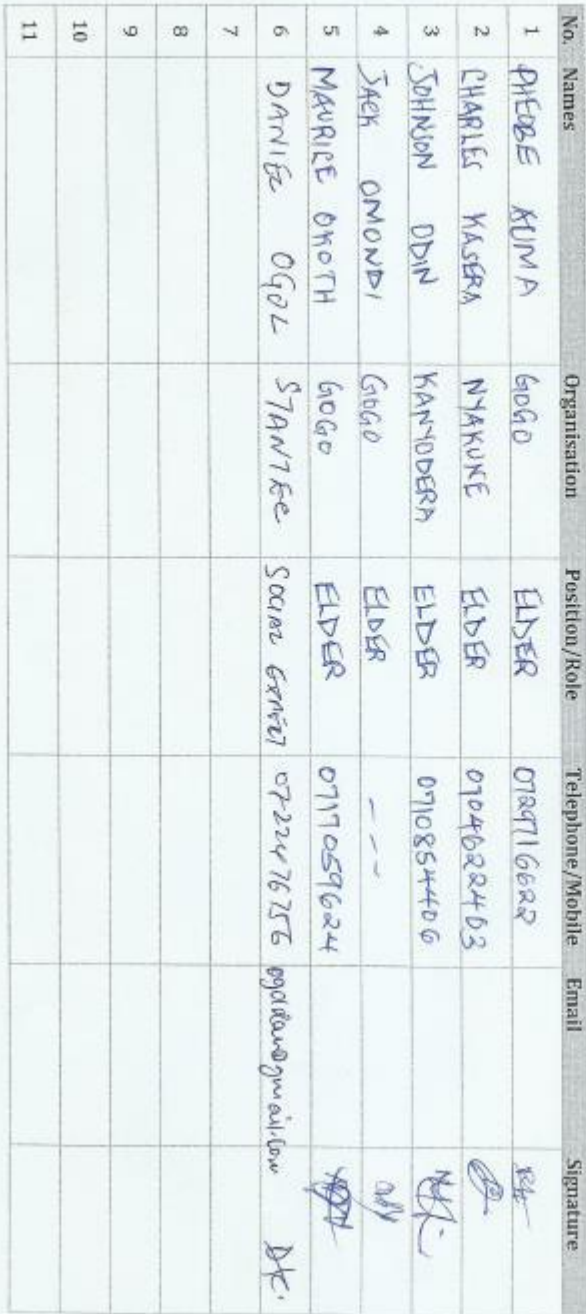 No. Names Organisation Position/Role Telephone/Mobile Email Signature
1 PHEOBE AUMA GOGO ELDER 0729716622
2 CHARLES KASERA NYAKUNE ELDER 0704622403
3 JOHNSON ODIN KANYODERA ELDER 0710854406
4 JACK OMONDI GOGO ELDER ---
5 MAURICE OKOTH GOGO ELDER 0717059624
6 DANIEL OGOL STANTEC SOCIAL EXPERT 0722476756
7
8
9
10
11